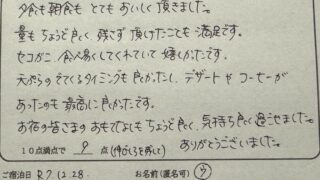 夕食も朝食も とても おいしく 頂きました。
量も ちょうど良く、残さず 頂けたことも 満足です。
セコガニ、食べ易くしてくれていて 嬉しかったです。
天ぷらの でてくるタイミングも 良かったし、デザートや コーヒーが
あったのも 最高に良かったです。
お宿の皆さまの おもてなしも ちょうど良く、気持ち良く 過せました。
10点満点で 9 点 (伸びしろを残して) ありがとうございました。
ご宿泊日 R7.12.28. お名前(匿名可)